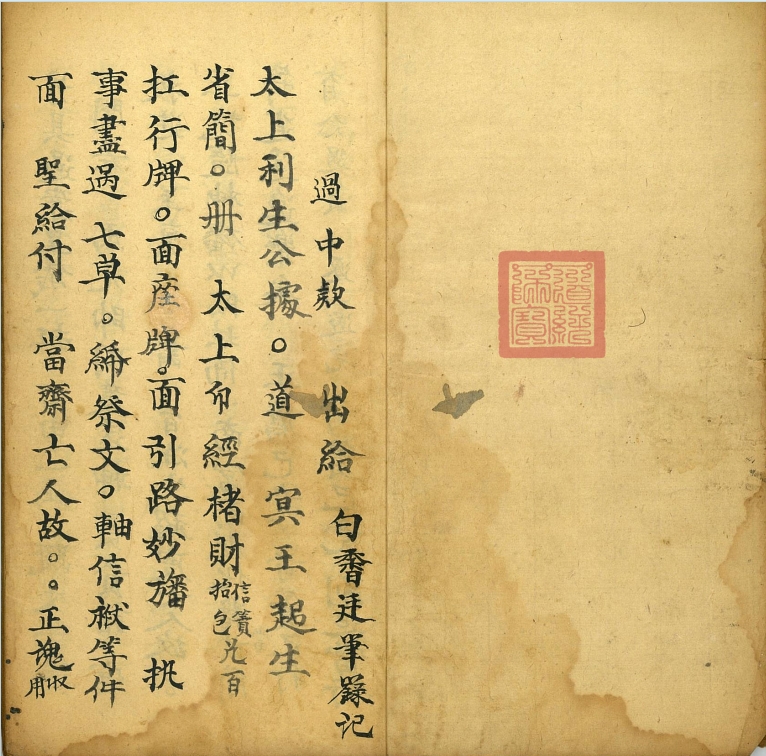 過中欵 出給 白香廷筆録记
太上利生公據。道 冥王起生
省簡。册 太上印經楮財 信簀 抬包 百
扛行牌。面座牌。面引路妙旛 扎
事盡過 七草。 祭文。軸信袱等件
面 聖給付 當齋亡人故。。正魂 收用